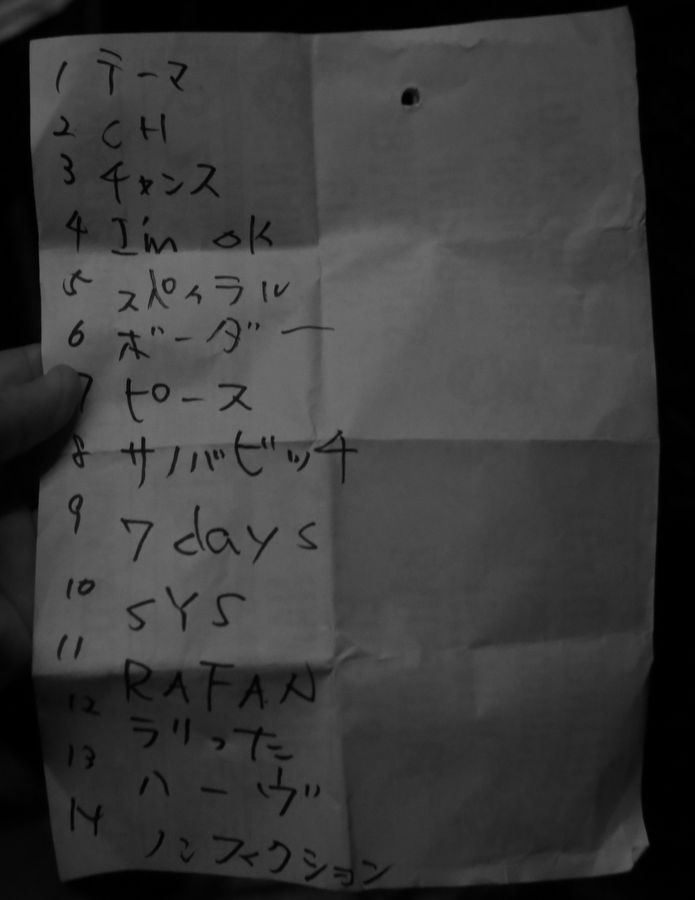 1 テーマ
2 CH
3 チャンス
4 I'm ok
5 スパイラル
6 ボーダー
7 ピース
8 サノバビッチ
9 7 days
10 SYS
11 RAFAN
12 ラリった
13 ハーヴ
14 ノンフィクション